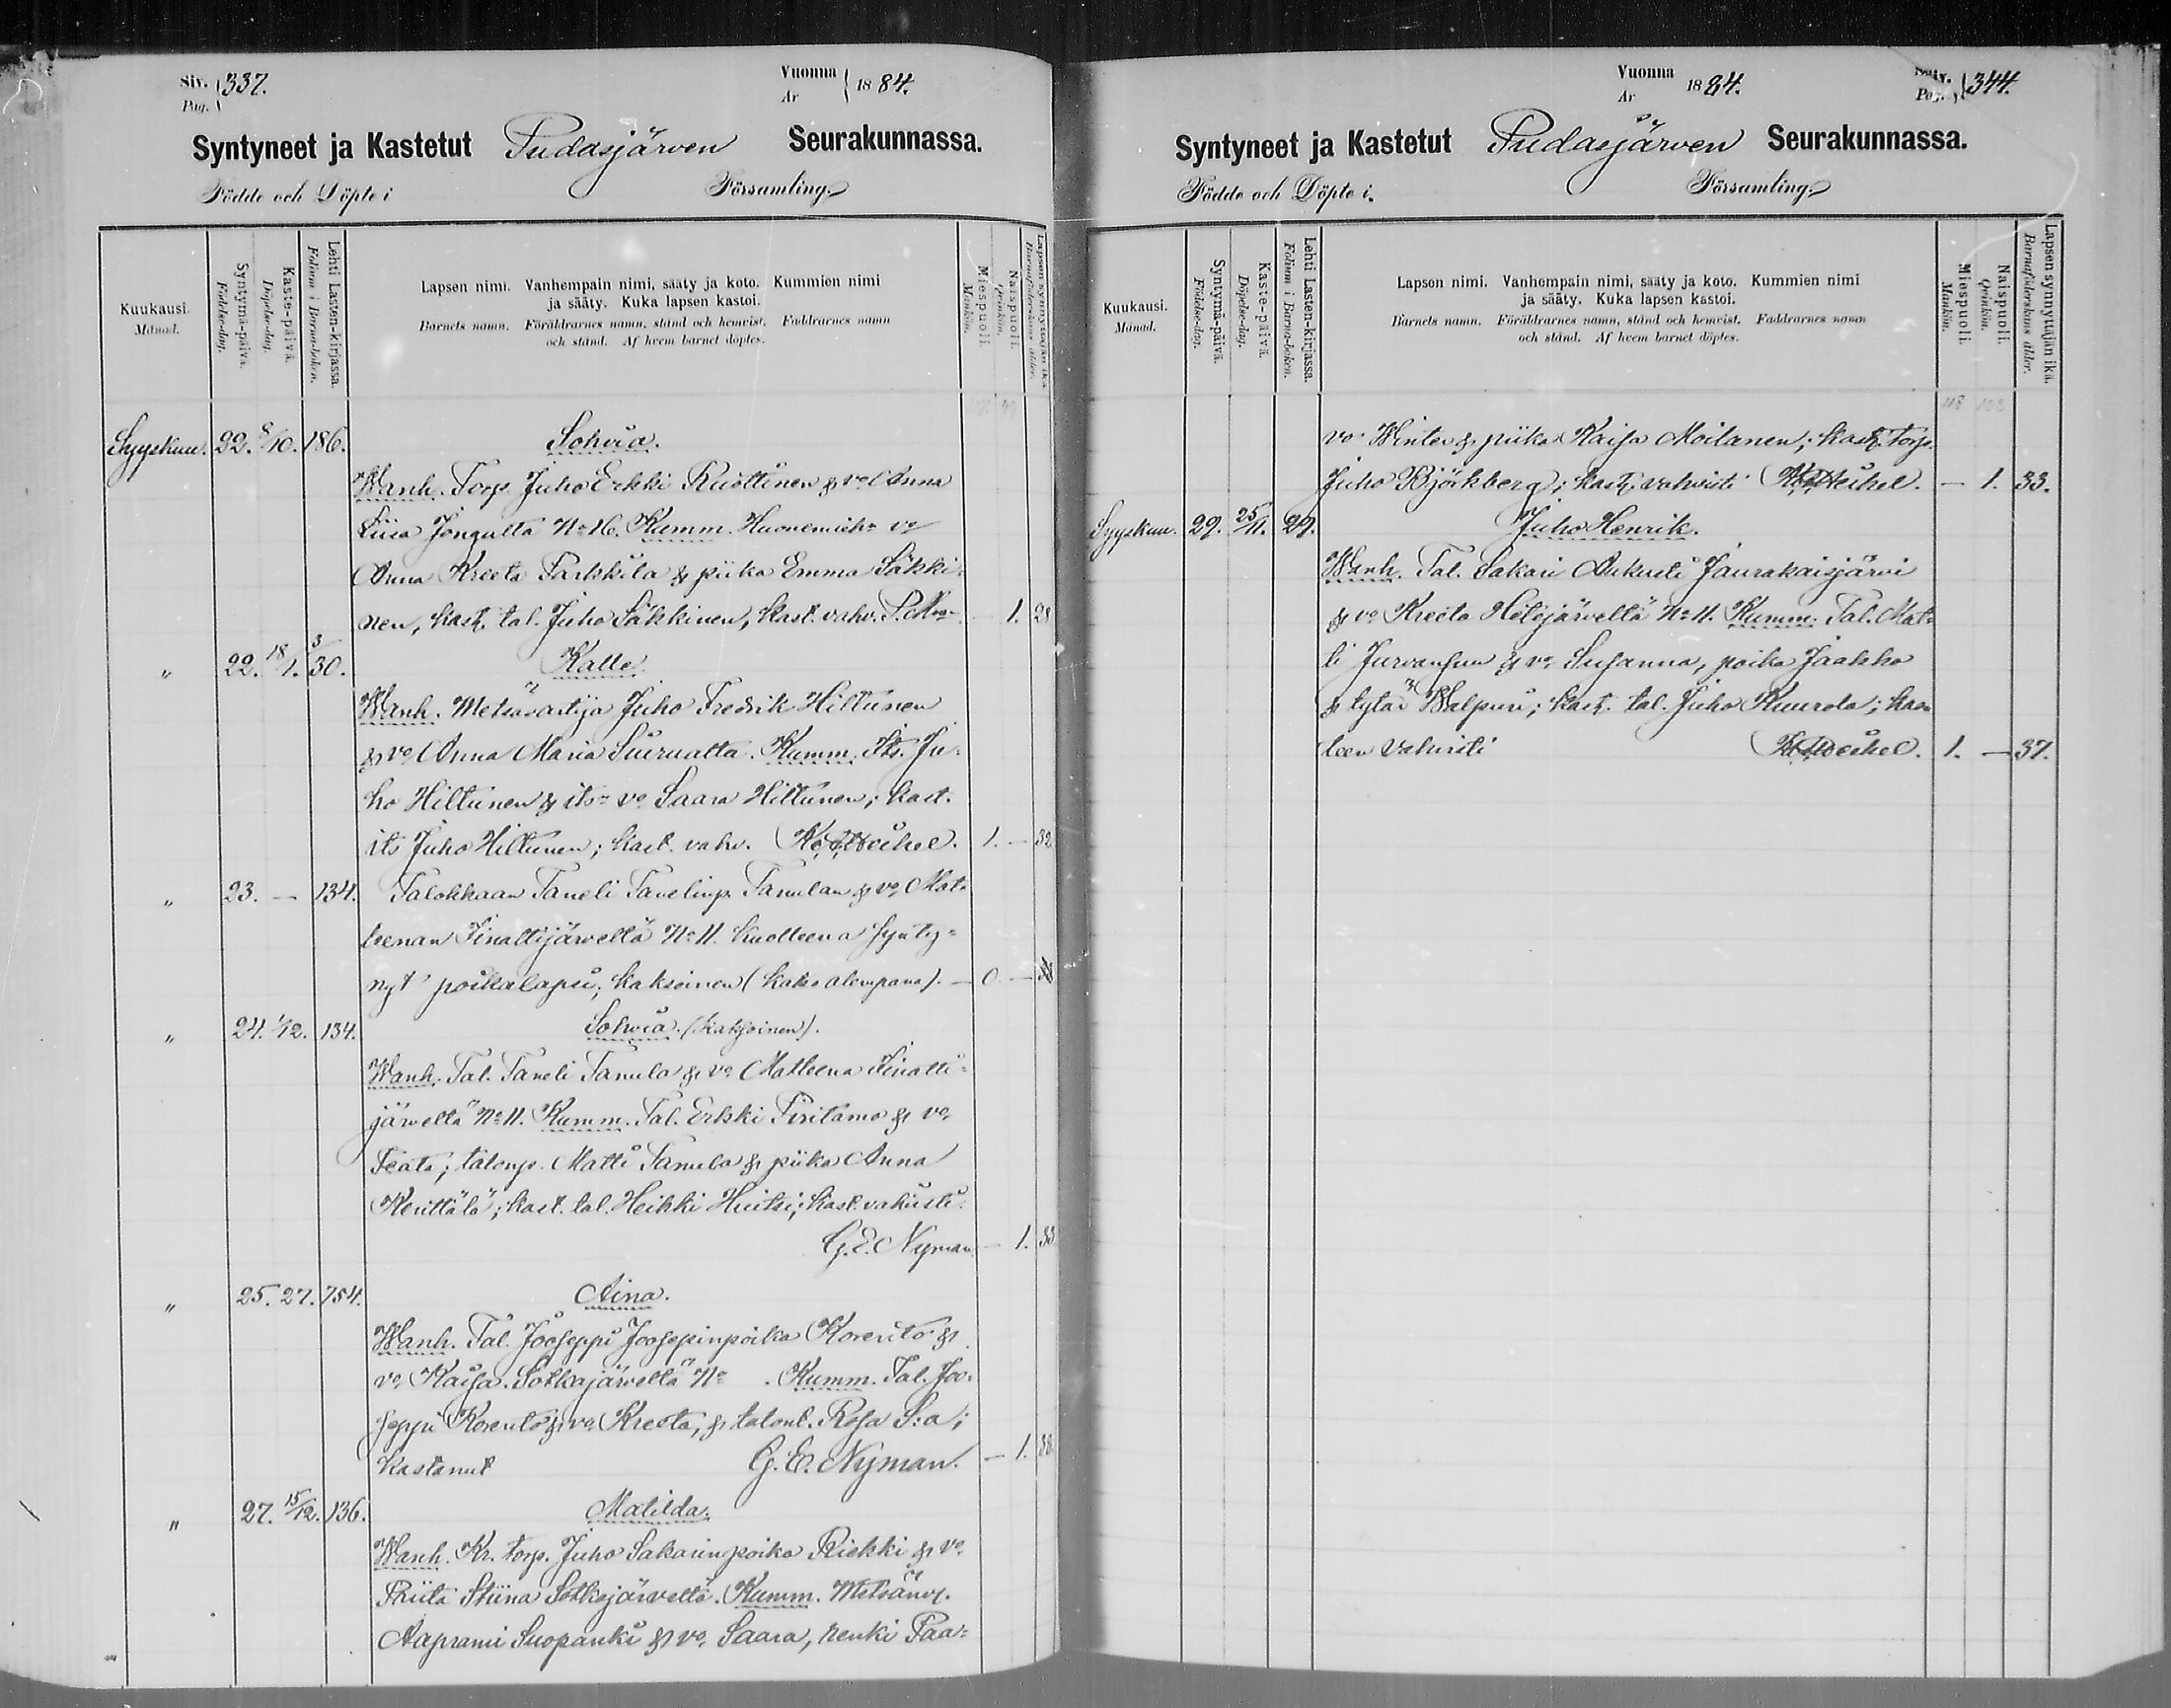 Siv. 337.
Pag.
Vuonna 1884.
Ar
Syntyneet ja Kastetut Pudasjärven Seurakunnassa.
Födde och Döpte i Församling.
Kuukausi. Månad.
Syntymä-päivä. Födelse-dag.
Kaste-päivä. Döpelse-dag.
Lehti Lasten-kirjassa. Folium i Barna-boken.
Lapsen nimi. Vanhempain nimi, sääty ja koto. Kummien nimi
ja sääty. Kuka lapsen kastoi.
Barnets namn. Föräldrarnes namn, stånd och hemvist. Faddrarnes namn
och stånd. Af hvem barnet döptes.
Miespuoli. Mankön.
Naispuoli. Qvinkön.
Lapsen synnyttäjän ikä. Barnaföderskans ålder.
Syyskuu. 22. 8/10. 186. Sohvia.
Wanh. Torp. Juho Erkki Ruottinen & vo Anna
Liisa Jongulta No 16. Kumm. Huonemieh: vo
Anna Kreeta Parkkila & piika Emma Säkki-
nen, kast. tal. Juho Säkkinen, kast. vahv. — 1. 28
" 22. 18/1. 3/30. Kalle.
Wanh. Metsävartija Juho Fredrik Hiltunen
& vo Anna Maria Siurualta. Kumm. Its. Ju-
ho Hiltunen & its= vo Saara Hiltunen; kast.
its Juho Hiltunen; kast. vahv. 1. — 32
" 23. — 134. Talokkaan Taneli Tanelinp. Tanulan & vo Mat-
leenan Iinattijärveltä No 11. kuolleena synty-
nyt poikalapsi; kaksoinen (katso alempana). — 0. —
" 24. 1/12. 134. Sohvia. (kaksoinen).
Wanh. Tal. Taneli Tanula & vo Matleena Iinatti-
järveltä No 11. Kumm. Tal. Erkki Piritamo & vo
; talonp. Matti Tanula & piika Anna
Kerittälä; kast. tal. Heikki Hintsi; kast. vahvisti
G. E. Nyman — 1. 33
" 25. 27. 754. Aina.
Wanh. Tal. Jooseppi Joosepinpoika Korento &
vo Kaisa Sotkajärveltä No . Kumm. Tal. Joo-
seppi Korento & vo Kreeta, & talont. Rosa S:a;
kastanut G. E. Nyman. — 1. 38
" 27. 15/12. 136. Matilda.
Wanh. Kr. torp. Juho Sakarinpoika Riekki & vo
Priita Stiina Sotkajärveltä. Kumm. Metsänv.
Aaprami Suopanki & vo Saara, renki Paa-
Vuonna 1884.
Ar
Siv. 344.
Pag.
Syntyneet ja Kastetut Pudasjärven Seurakunnassa.
Födde och Döpte i Församling.
Kuukausi. Månad.
Syntymä-päivä. Födelse-dag.
Kaste-päivä. Döpelse-dag.
Lehti Lasten-kirjassa. Folium i Barna-boken.
Lapsen nimi. Vanhempain nimi, sääty ja koto. Kummien nimi
ja sääty. Kuka lapsen kastoi.
Barnets namn. Föräldrarnes namn, stånd och hemvist. Faddrarnes namn
och stånd. Af hvem barnet döptes.
Miespuoli. Mankön.
Naispuoli. Qvinkön.
Lapsen synnyttäjän ikä. Barnaföderskans ålder.
vo Winter & piika Kaisa Moilanen; kast. torp.
Juho Björkberg; kast. vahvisti — 1. 33.
Syyskuu. 29. 25/11. 29. Juho Henrik.
Wanh. Tal. Sakari Aukusti Jaurakaisjärvi
& vo Kreeta Hetejärveltä No 11. Kumm. Tal. Mat-
ti Jurvansuu & vo Susanna, poika Jaakko
& tytär Walpuri; kast. tal. Juho Kuurola; kas-
teen vahvisti 1. — 37.